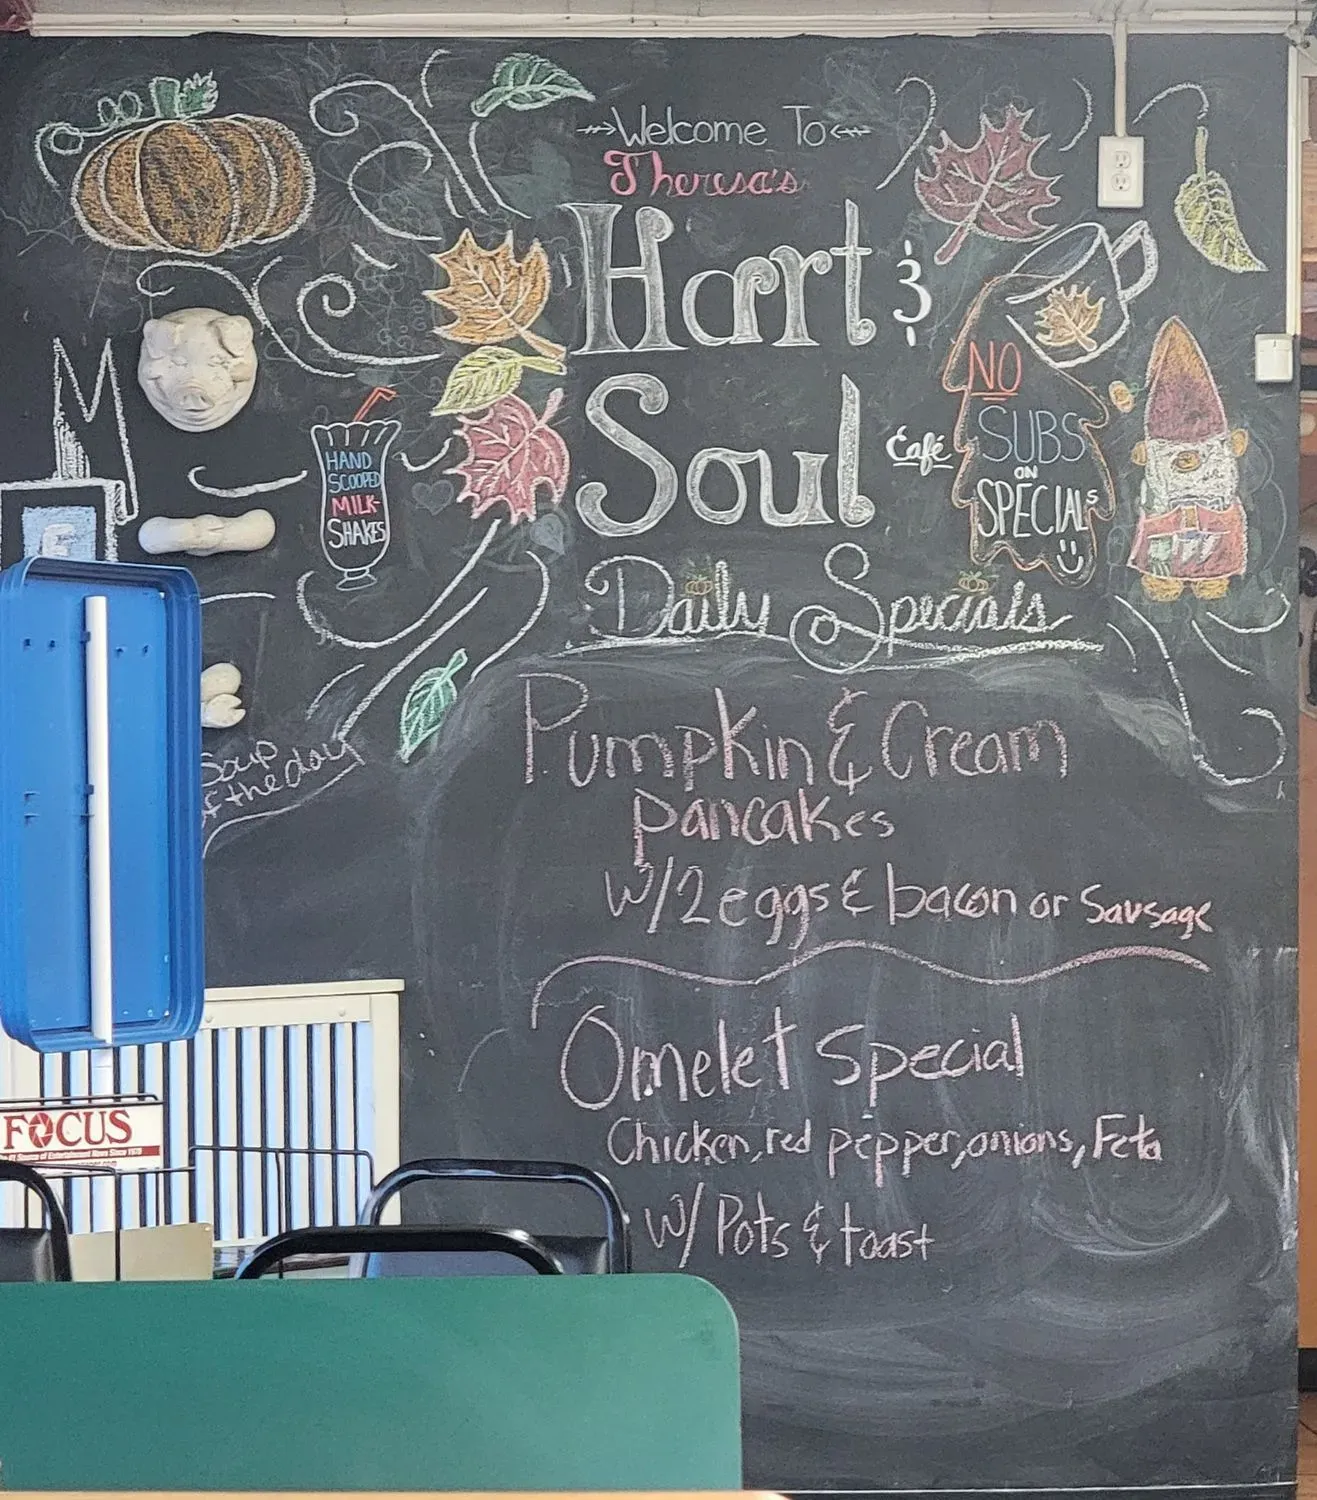 Welcome To
Theresa's
Hart &
Soul
Café
NO
SUBS
ON
SPECIALS
HAND
SCOOPED
MILK-
SHAKES
Daily Specials
Pumpkin & Cream
pancakes
w/2 eggs & bacon or Sausage
Omelet Special
Chicken, red pepper, onions, Feta
w/ Pots & toast
Soup
of the day
M
FOCUS